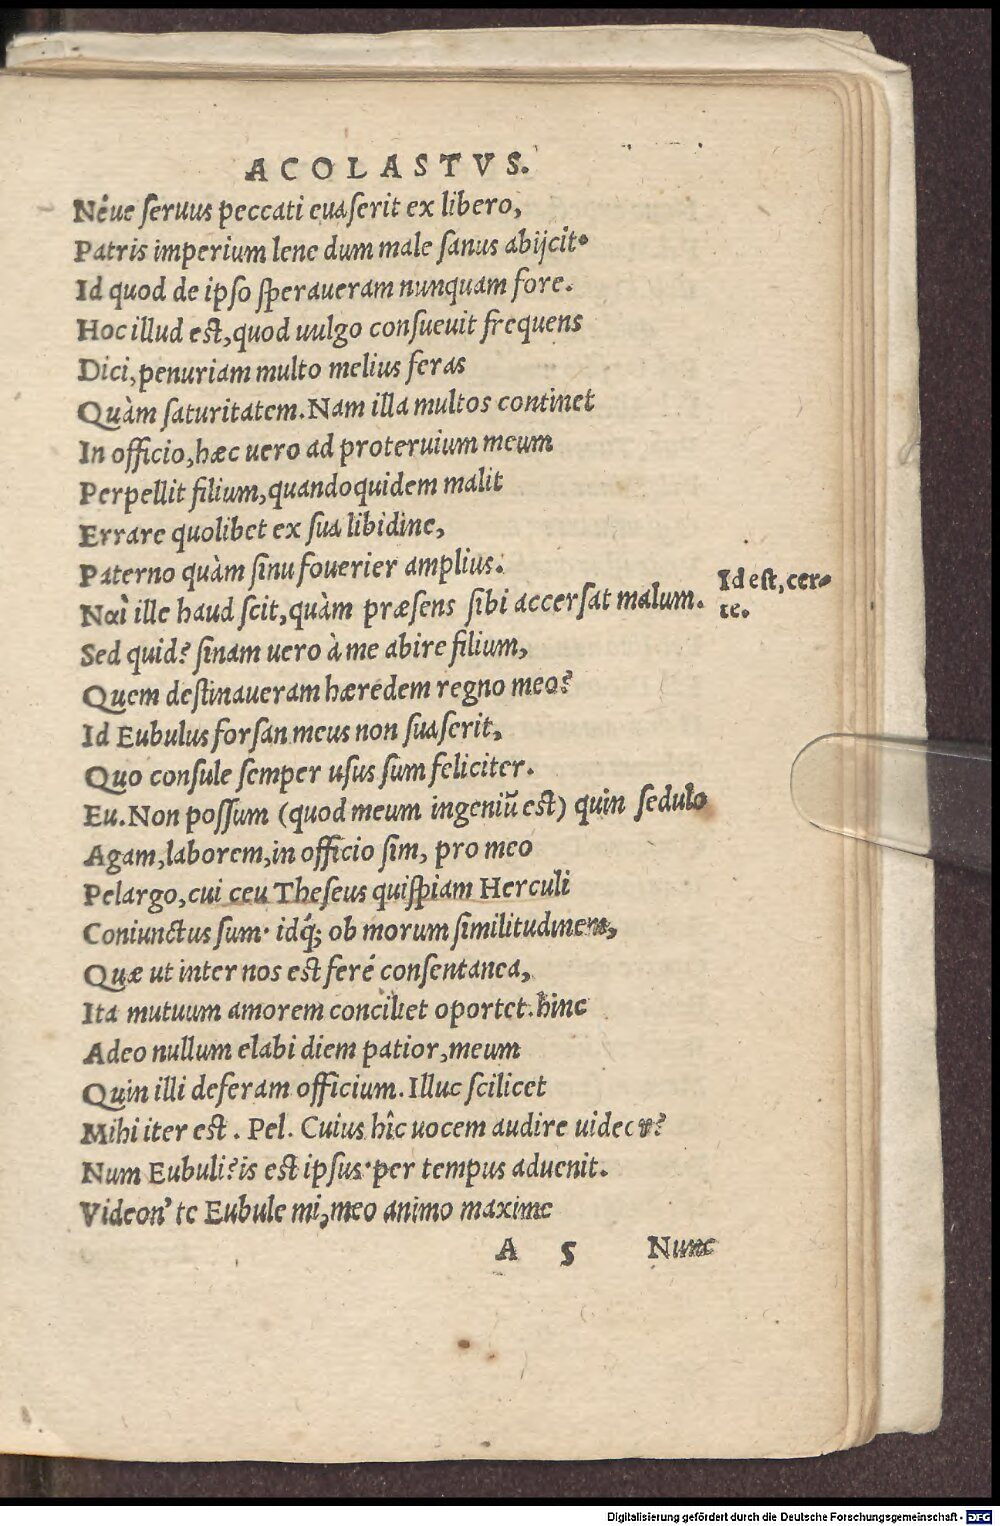 ACOLASTVS.
Néue ſeruus peccati euaſerit ex libero,
Patris imperium lene dum male ſanus abijcit.
Id quod de ipſo ſperaueram nunquam fore.
Hoc illud eſt, quod uulgo conſueuit frequens
Dici, penuriam multo melius feras
Quàm ſaturitatem. Nam illa multos continet
In officio, hæc uero ad proteruium meum
Perpellit filium, quandoquidem malit
Errare quolibet ex ſua libidine,
Paterno quàm ſinu fouerier amplius.
Ναὶ ille haud ſcit, quàm præſens ſibi accerſat malum.
Id eſt, cer-
te.
Sed quid? ſinam uero à me abire filium,
Quem deſtinaueram hæredem regno meo?
Id Eubulus forſan meus non ſuaſerit,
Quo conſule ſemper uſus ſum feliciter.
Eu. Non poſſum (quod meum ingeniū eſt) quin ſedulo
Agam, laborem, in officio ſim, pro meo
Pelargo, cui ceu Theſeus quiſpiam Herculi
Coniunctus ſum· idq́; ob morum ſimilitudinem,
Quæ ut inter nos eſt ferè conſentanea,
Ita mutuum amorem conciliet oportet. hinc
Adeo nullum elabi diem patior, meum
Quin illi deferam officium. Illuc ſcilicet
Mihi iter eſt. Pel. Cuius hîc uocem audire uideor?
Num Eubuli? is eſt ipſus· per tempus aduenit.
Videon' te Eubule mi, meo animo maxime
A 5 Nunc
Digitalisierung gefördert durch die Deutsche Forschungsgemeinschaft - DFG